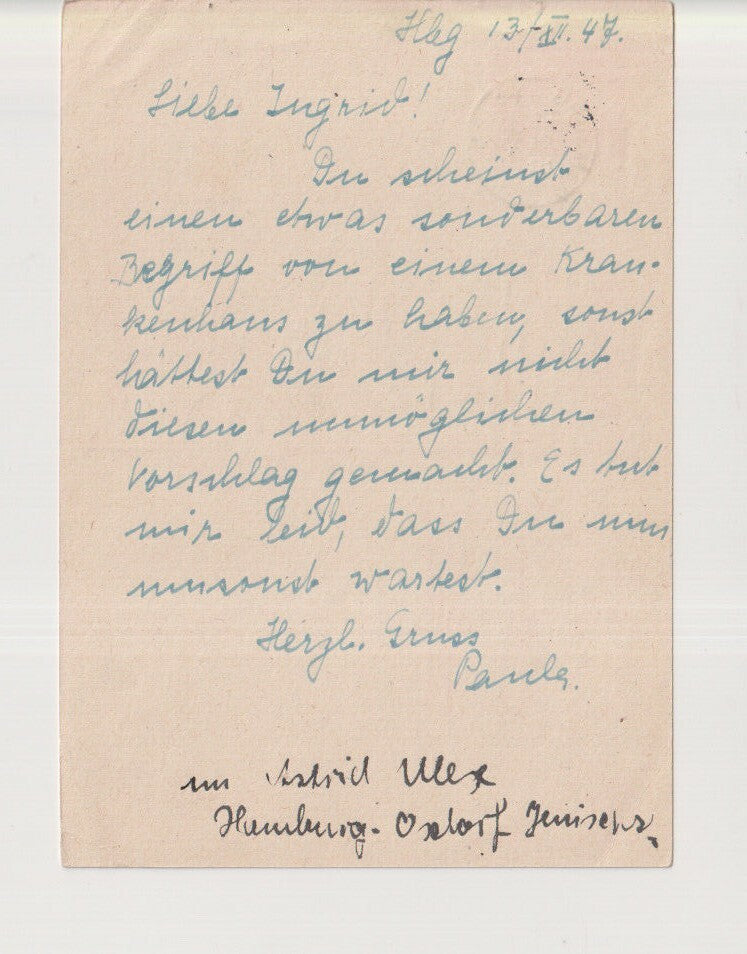 Hbg 13/XII. 47.
Liebe Ingrid!
Du scheinst
einen etwas sonderbaren
Begriff von einem Kran-
kenhaus zu haben, sonst
hättest Du mir nicht
diesen unmöglichen
Vorschlag gemacht. Es tut
mir leid, dass Du nun
umsonst wartest.
Herzl. Gruss
Paula.
Astrid Ulex
Hamburg-Osdorf